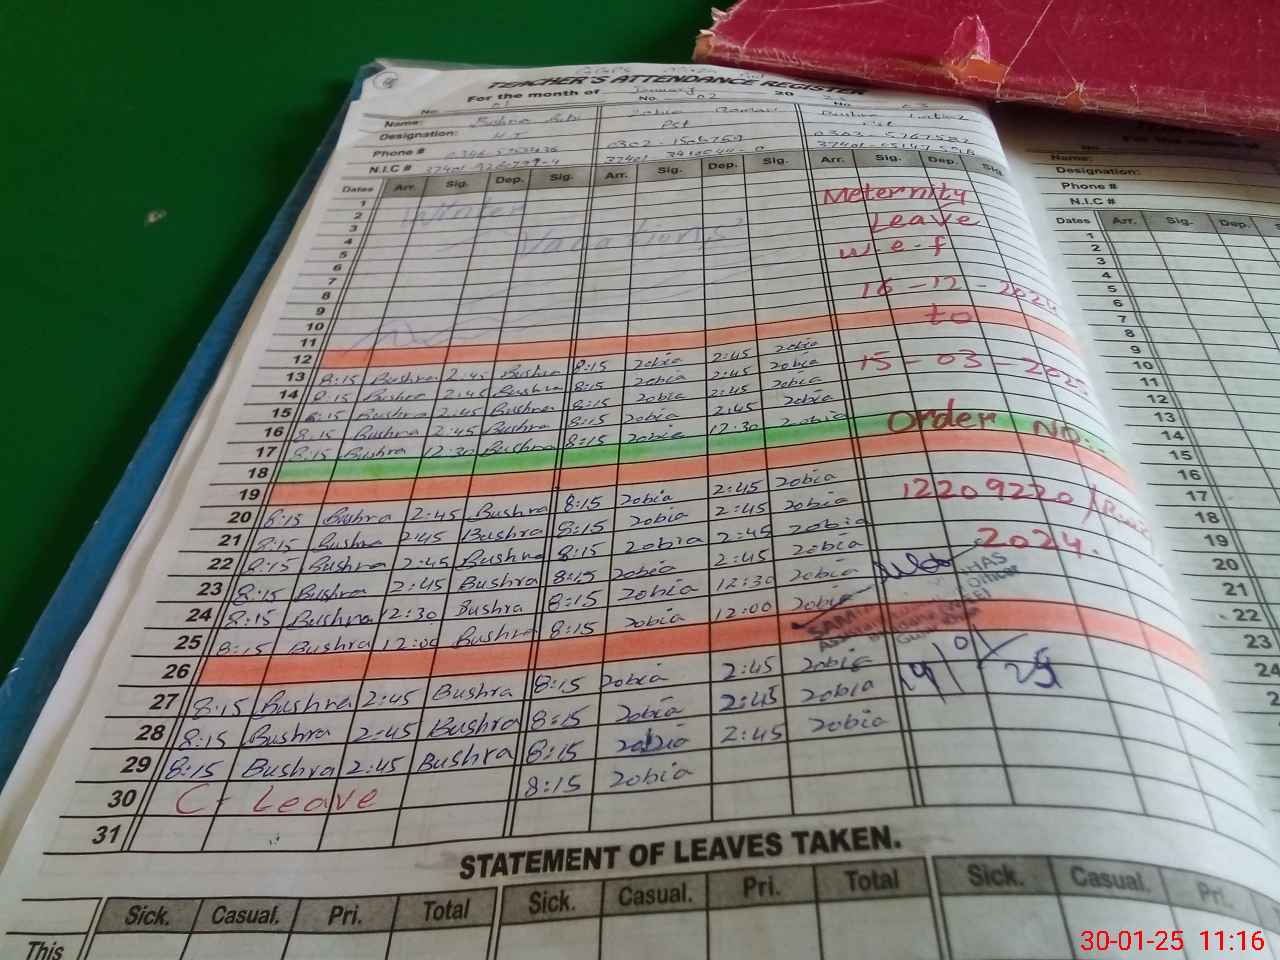 TEACHER'S ATTENDANCE REGISTER
For the month of January 20
No. 01 No. 02 No. 03
Name: Bushra Bibi Zobia
Designation: PST
Phone #
N.I.C #
Dates Arr. Sig. Dep. Sig. Arr. Sig. Dep. Sig. Arr. Sig. Dep. Sig.
1
2 Winter
3
4 Vacations
5
6
7
8
9
10
11
12
13 8:15 Bushra 2:45 Bushra 8:15 Zobia 2:45 Zobia
14 8:15 Bushra 2:45 Bushra 8:15 Zobia 2:45 Zobia
15 8:15 Bushra 2:45 Bushra 8:15 Zobia 2:45 Zobia
16 8:15 Bushra 2:45 Bushra 8:15 Zobia 2:45 Zobia
17 8:15 Bushra 12:30 Bushra 8:15 Zobia 12:30 Zobia
18
19
20 8:15 Bushra 2:45 Bushra 8:15 Zobia 2:45 Zobia
21 8:15 Bushra 2:45 Bushra 8:15 Zobia 2:45 Zobia
22 8:15 Bushra 2:45 Bushra 8:15 Zobia 2:45 Zobia
23 8:15 Bushra 2:45 Bushra 8:15 Zobia 2:45 Zobia
24 8:15 Bushra 12:30 Bushra 8:15 Zobia 12:30 Zobia
25 8:15 Bushra 12:00 Bushra 8:15 Zobia 12:00 Zobia
26
27 8:15 Bushra 2:45 Bushra 8:15 Zobia 2:45 Zobia
28 8:15 Bushra 2:45 Bushra 8:15 Zobia 2:45 Zobia
29 8:15 Bushra 2:45 Bushra 8:15 Zobia 2:45 Zobia
30 C- Leave 8:15 Zobia
31
Meternity
Leave
w.e.f
16-12-2024
to
15-03-2025
Order No.
12209220/
2024.
STATEMENT OF LEAVES TAKEN.
Sick. Casual. Pri. Total Sick. Casual. Pri. Total Sick. Casual. Pri.
This
Name:
Designation:
Phone #
N.I.C #
Dates Arr. Sig. Dep.
1
2
3
4
5
6
7
8
9
10
11
12
13
14
15
16
17
18
19
20
21
22
23
24
30-01-25 11:16